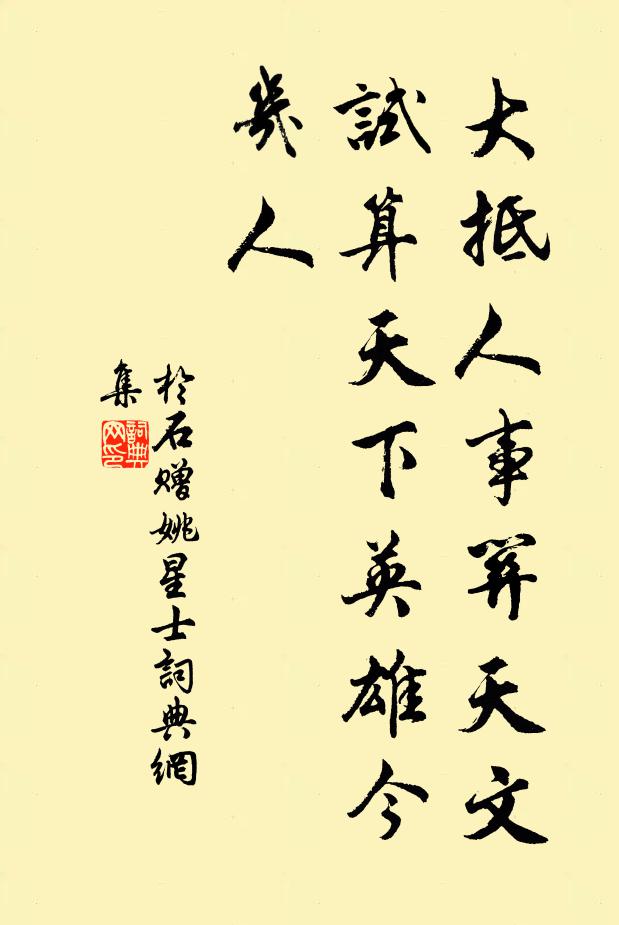 大抵人事關天文
試算天下英雄今
幾人
於石贈姚星士詞典網
集
詞典
網印